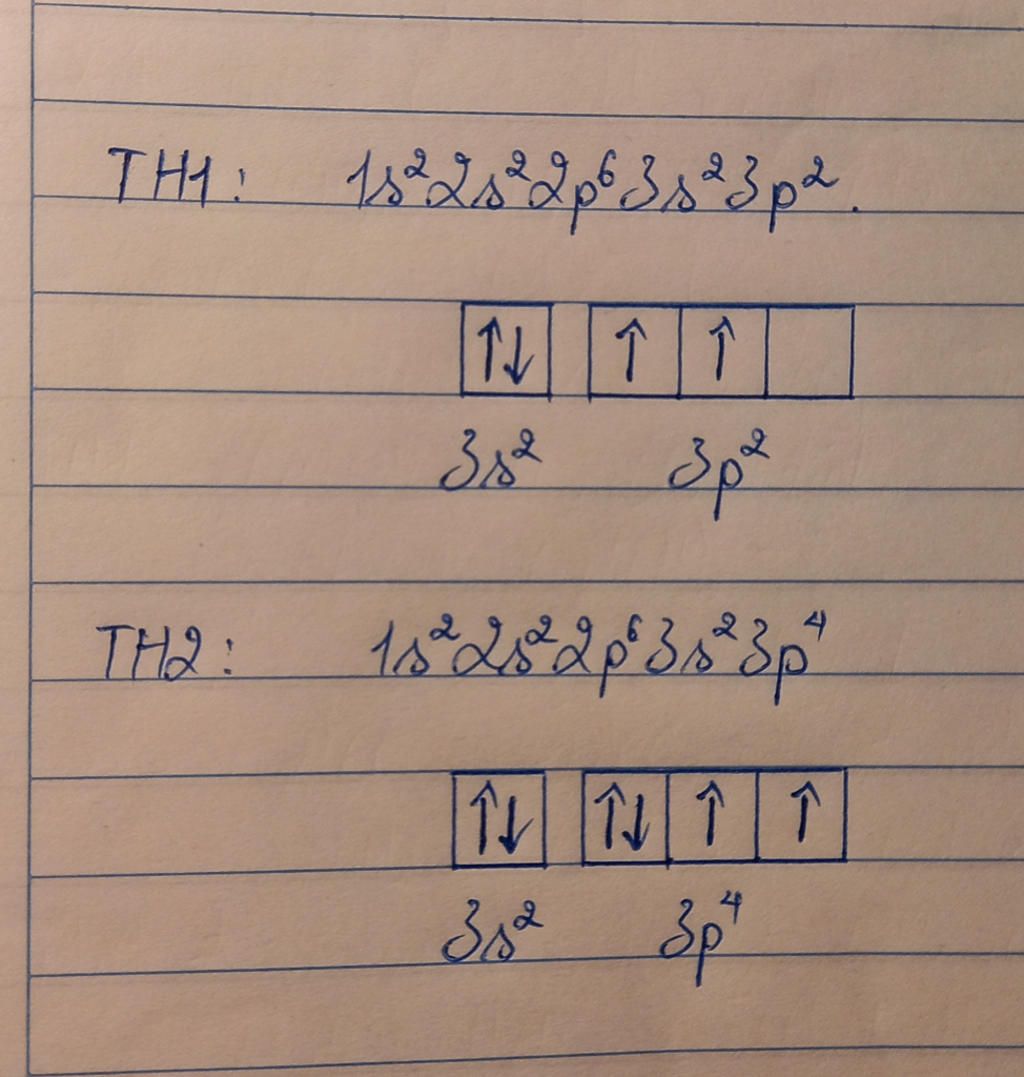 TH1: 1s²2s²2p⁶3s²3p².
↑↓ ↑ ↑
3s² 3p²
TH2: 1s²2s²2p⁶3s²3p⁴
↑↓ ↑↓ ↑ ↑
3s² 3p⁴